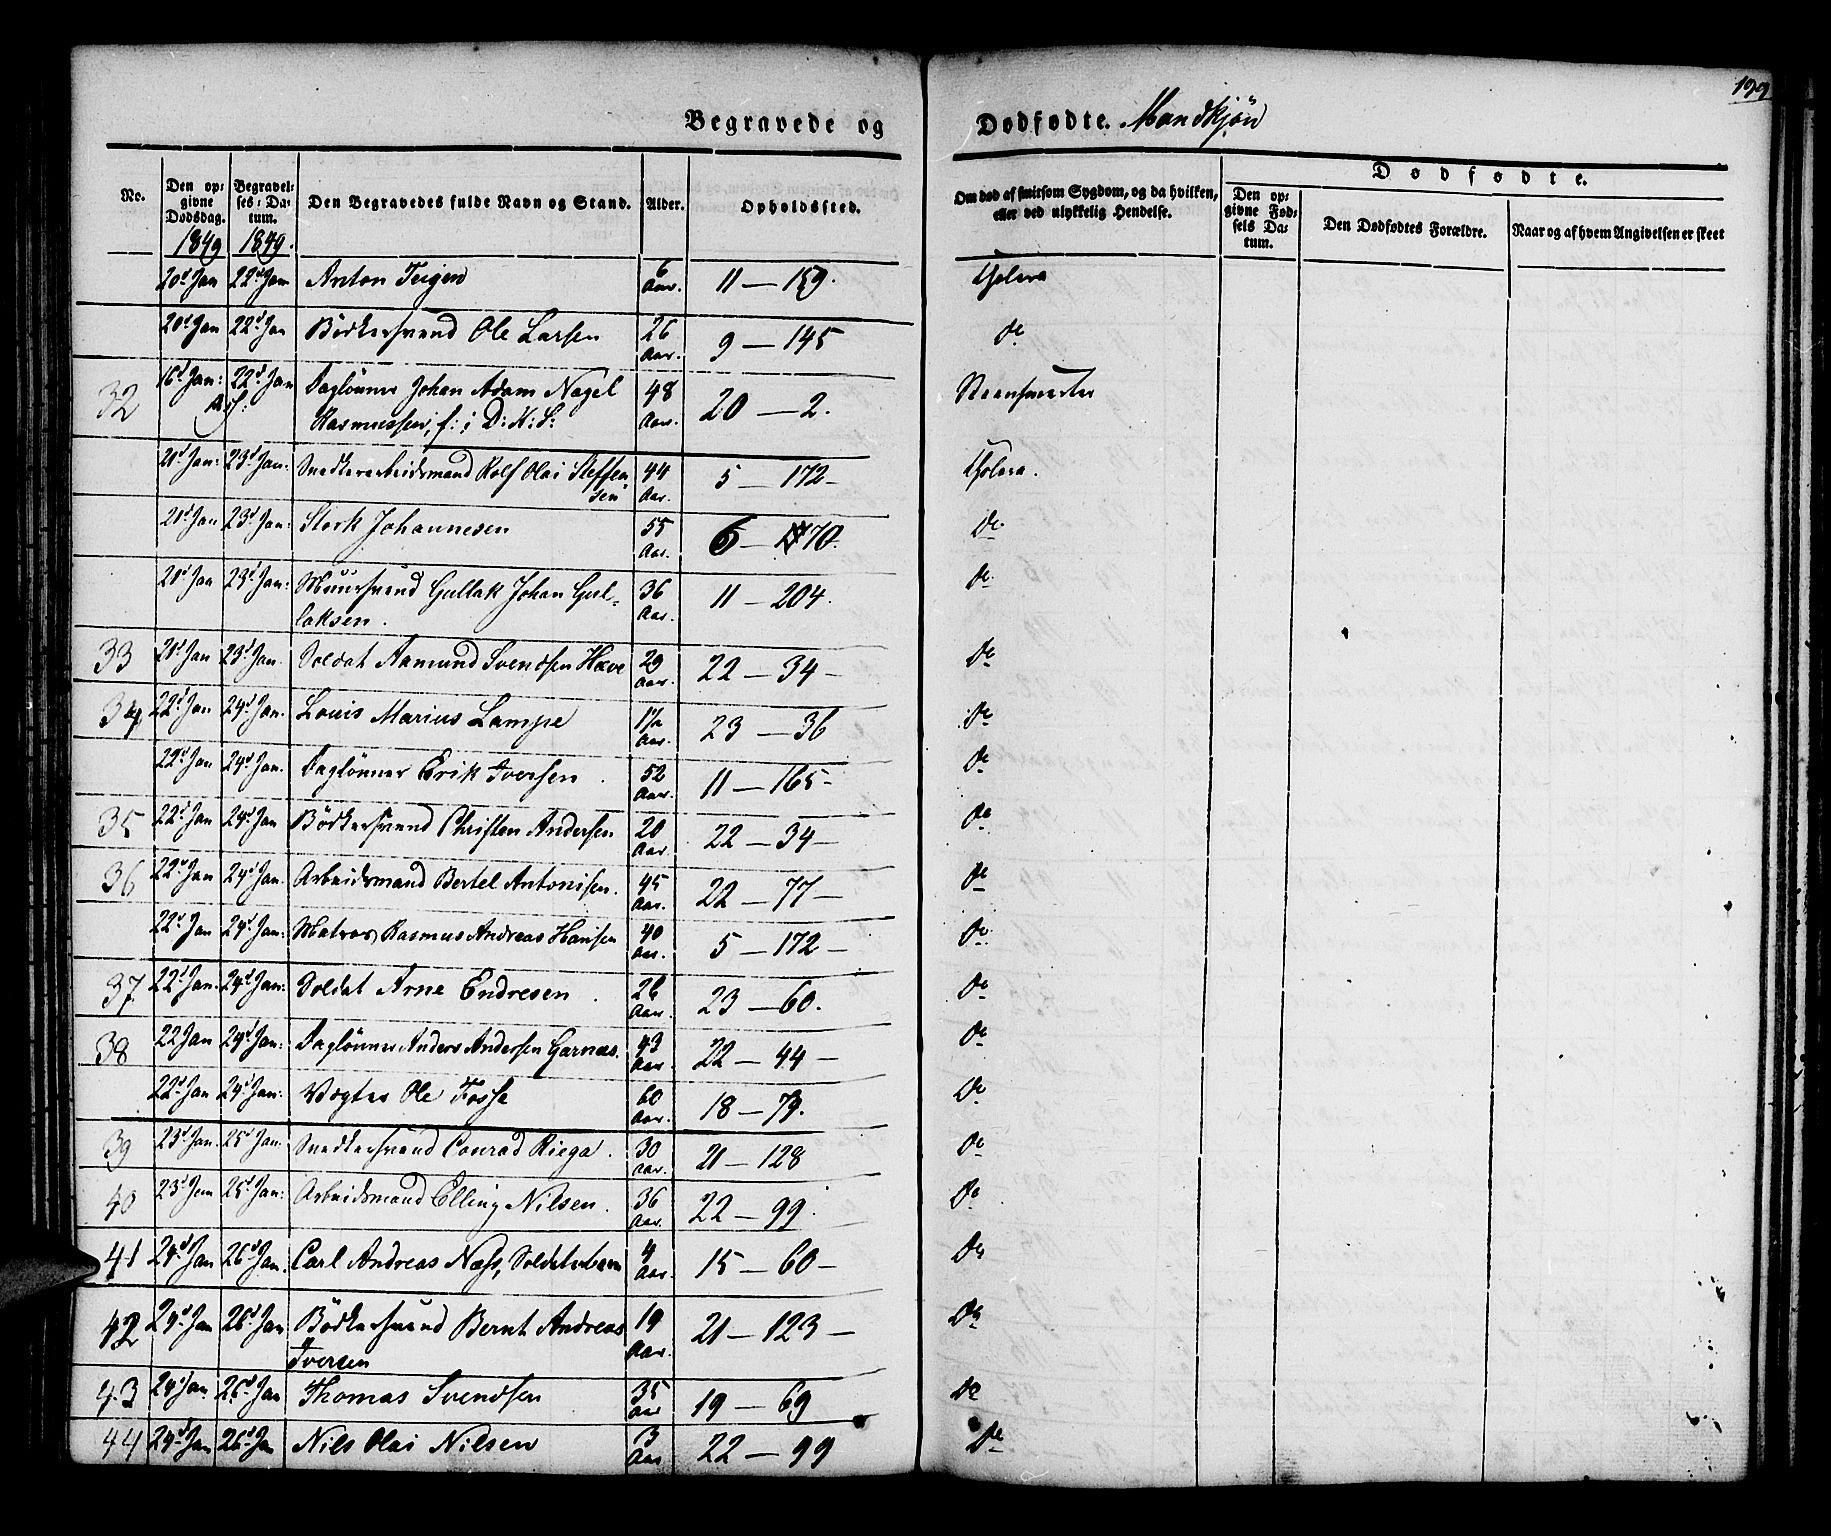 199
Begravede og Dødfødte. Mandkjøn
No.
Den opgivne Dødsdag.
Begravelses-Datum.
Den Begravedes fulde Navn og Stand.
Alder.
Opholdssted.
Om død af smitsom Sygdom, og da hvilken, eller ved ulykkelig Hendelse.
Dødfødte.
Den opgivne Fødsels Datum.
Den Dødfødtes Forældre.
Naar og af hvem Angivelsen er skeet
1849 1849.
20d Jan 22d Jan Anton Teigen 6 Aar. 11 — 159. Cholera
20d Jan 22d Jan Bødkersvend Ole Larsen 26 Aar. 9 — 145 do
32 16d Jan: 22d Jan Daglønner Johan Adam Nagel 48 Aar. 20 — 2.
Rasmussen, f: i D: K: S:
21d Jan: 23d Jan: Snedkerarbeidsmand Rolf Olai Steffen 44 Aar. 5 — 172 — Cholera.
sen
21d Jan 23d Jan: Stork Johannesen 55 Aar. 6 — 170. Do
21d Jan 23d Jan: Muursvend Gullak Johan Gul- 36 Aar. 11 — 204. Do
laksen.
33 21d Jan 23d Jan. Soldat Aamund Svendsen Have 29 Aar. 22 — 34 — Do
34 22d Jan 24d Jan. Louis Marius Lampe 1½ Aar. 23 — 36 Do
22d Jan 24d Jan. Daglønner Erik Iversen. 52 Aar. 11 — 165 — Do
35 22d Jan 24d Jan Bødkersvend Christen Andersen 20 Aar. 22 — 34 — Do
36 22d Jan 24d Jan. Arbeidsmand Bertel Antonisen. 45 Aar. 22 — 77 — Do
22d Jan 24d Jan: Matros Rasmus Andreas Hansen 40 Aar. 5 — 172 — Do
37 22d Jan. 24d Jan: Soldat Arne Endresen. 26 Aar. 23 — 60. Do
38 22 Jan 24d Jan: Daglønner Anders Andersen Garnæs. 43 Aar. 22 — 44 — Do
22d Jan 24d Jan: Vægter Ole Fosse 60 Aar. 18 — 79. Do
39 23d Jan. 25d Jan. Snedkersvend Conrad Riega. 30 Aar. 21 — 128 Do
40 23d Jan 25d Jan: Arbeidsmand Elling Nilsen. 36 Aar. 22 — 99. Do
41 24d Jan 26d Jan. Carl Andreas Næss, Soldaterbarn 4 Aar. 15 — 60 — Do
42 24d Jan 26d Jan Bødkersvend Bernt Andreas 19 Aar. 21 — 123 — Do
Iversen
43 24d Jan. 26d Jan Thomas Svendsen 35 Aar 19 — 69 Do
44 24d Jan 26d Jan Nils Olai Nilsen 3 Aar 22 — 99 Do